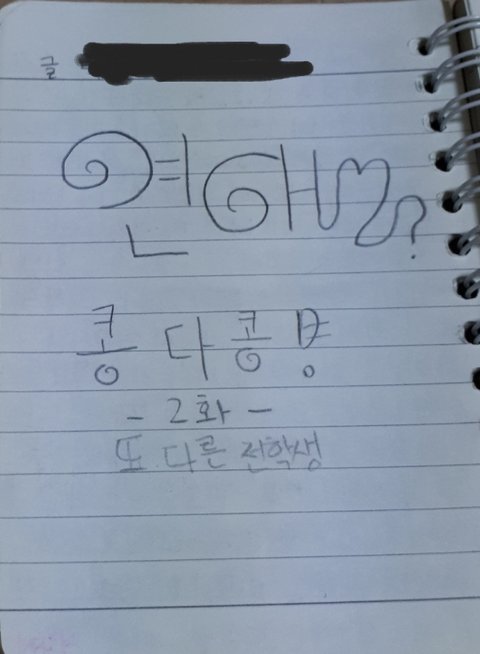 글
연애?
콩 다 콩
- 2화 -
또 다른 전학생